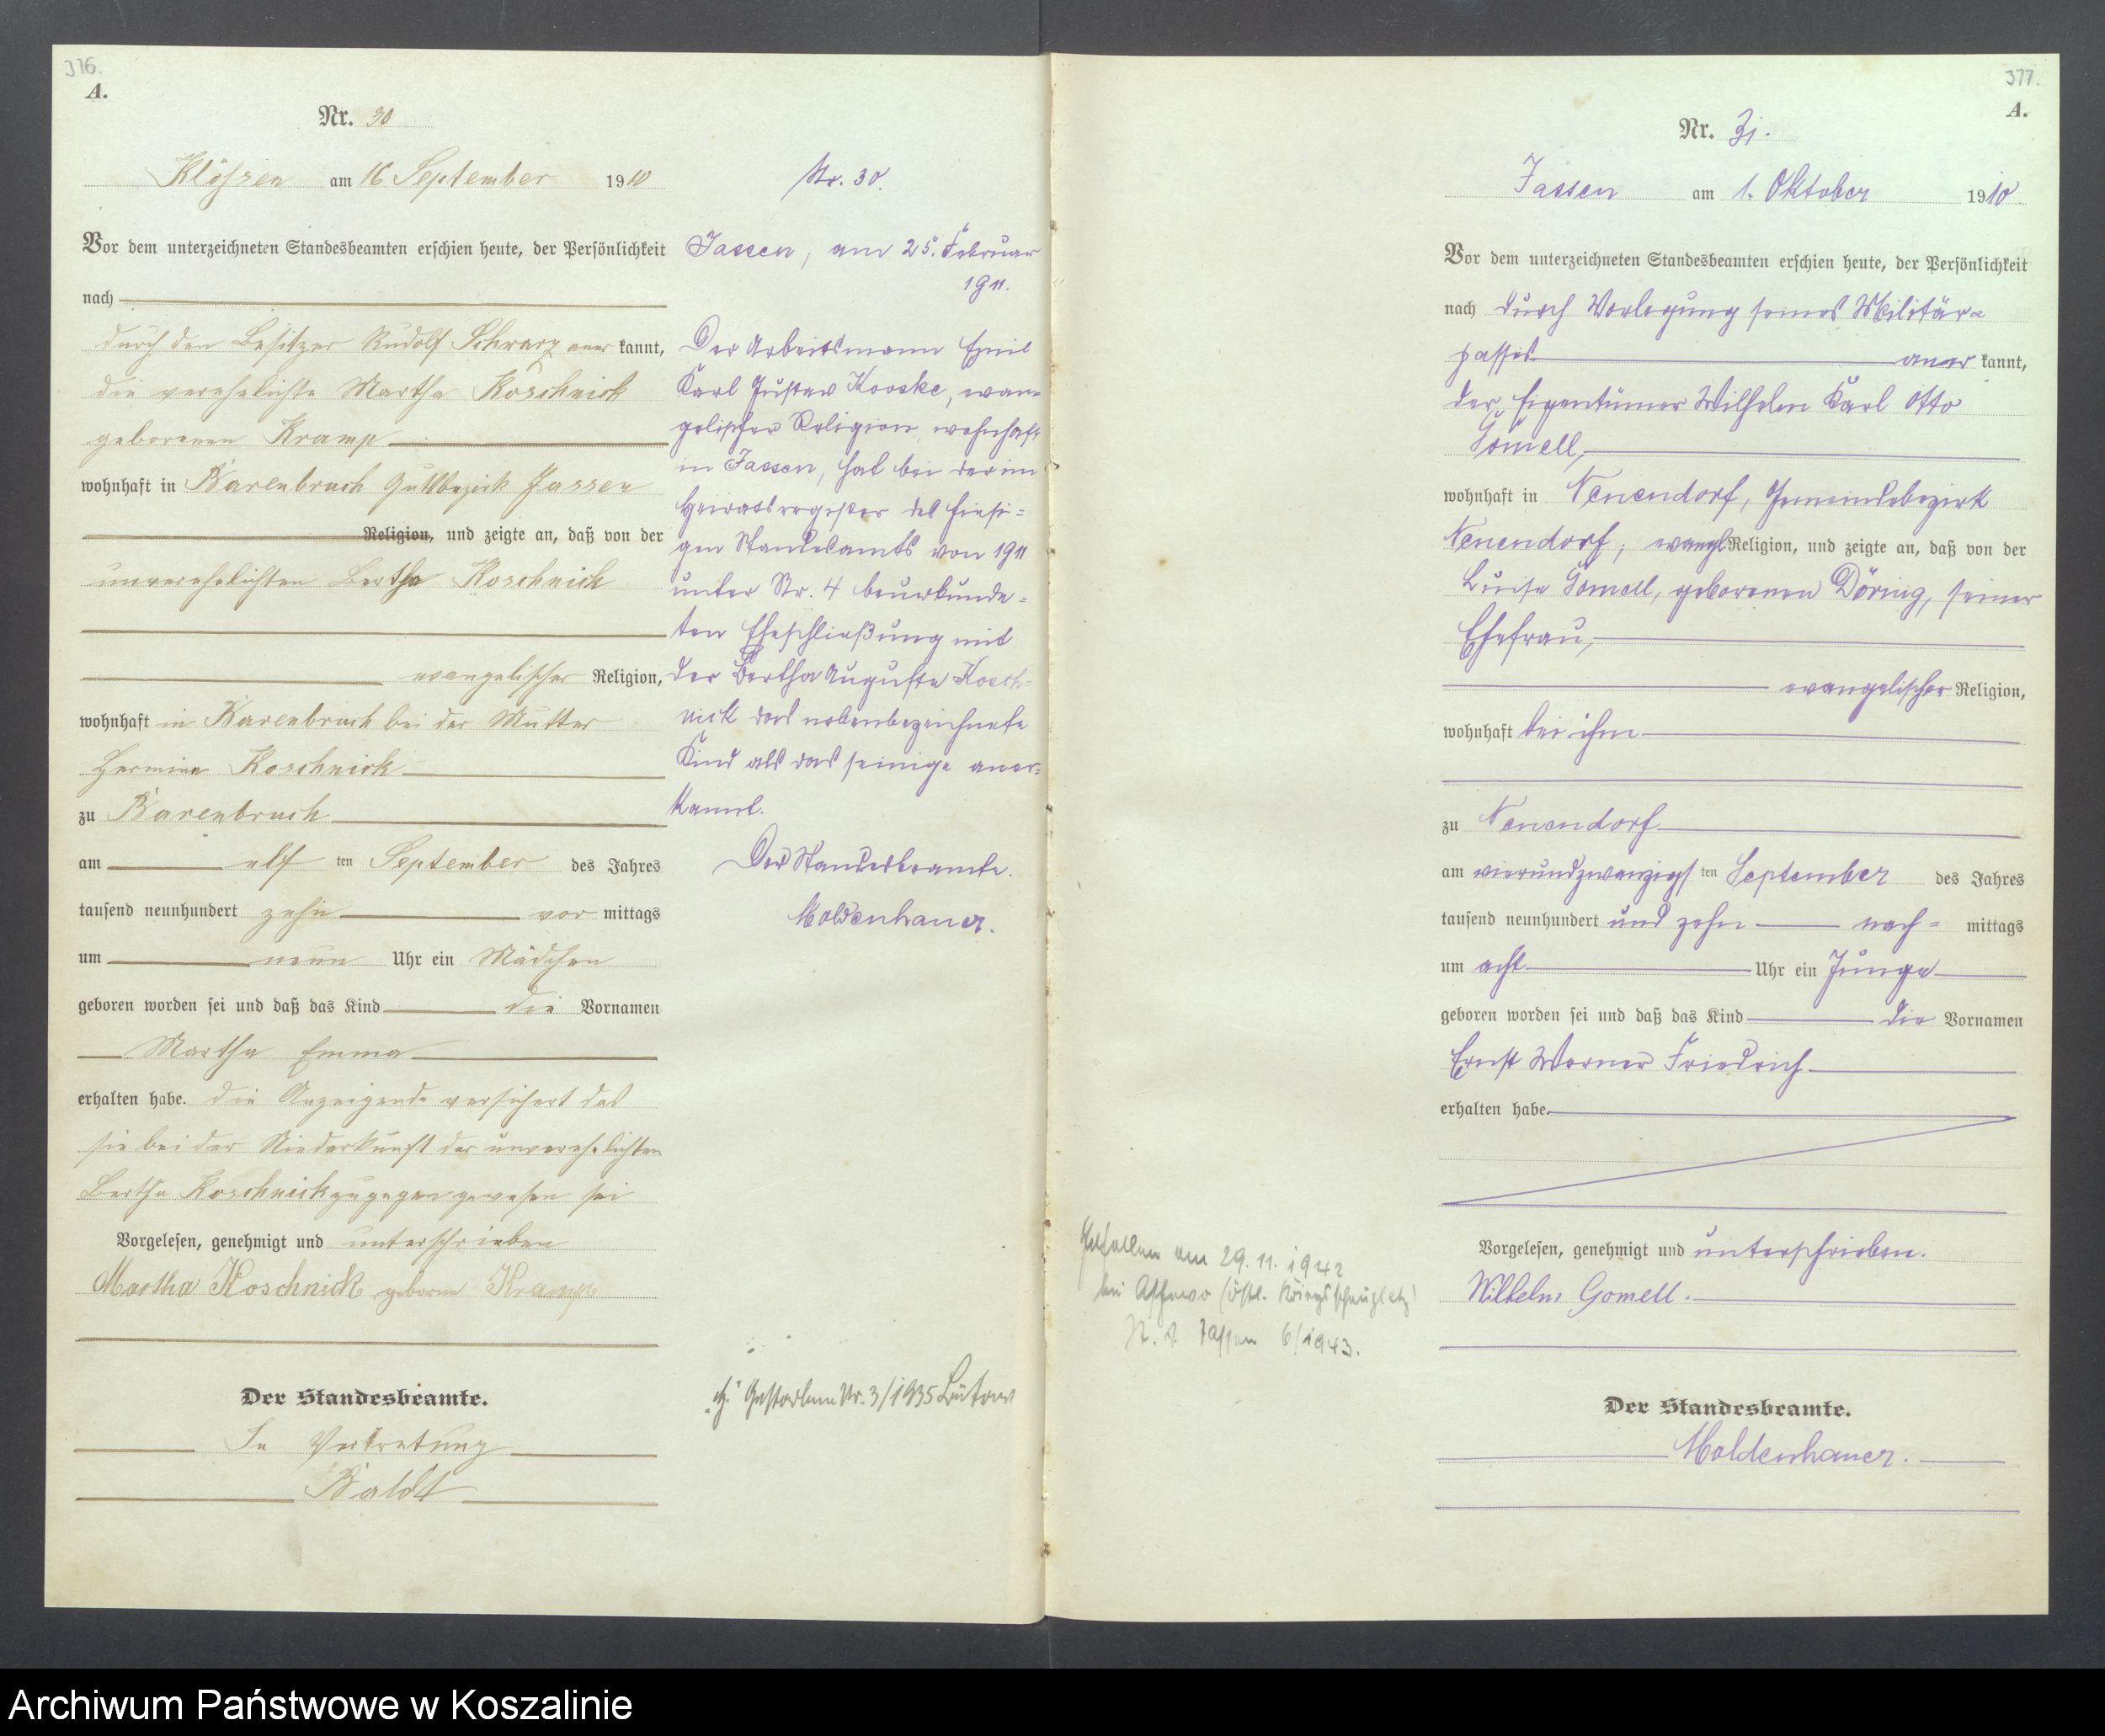 376.
A.
Nr. 30
Klößen am 16 September 1910
Vor dem unterzeichneten Standesbeamten erschien heute, der Persönlichkeit
nach
durch den Besitzer Rudolf Schwarz aner kannt,
die verehelichte Martha Koschnick
geborenen Kramp
wohnhaft in Barenbruch Gutsbezirk Jassen
Religion, und zeigte an, daß von der
unverehelichten Bertha Koschnick
evangelischer Religion,
wohnhaft in Barenbruch bei der Mutter
Hermine Koschnick
zu Barenbruch
am elf ten September des Jahres
tausend neunhundert zehn vor mittags
um neun Uhr ein Mädchen
geboren worden sei und daß das Kind die Vornamen
Martha Emma
erhalten habe. Die Anzeigende versichert das
sie bei der Niederkunft der unverehelichten
Bertha Koschnick zugegen gewesen sei
Vorgelesen, genehmigt und unterschrieben
Martha Koschnick geborene Kramp
Der Standesbeamte.
In Vertretung
Baldt
Nr. 30.
Jassen, am 25. Februar
1911.
Der Arbeitsmann Emil
Karl Gustav Kooske, evan-
gelischer Religion, wohnhaft
in Jassen, hat bei der im
Heiratsregister des hiesi=
gen Standesamts von 1911
unter Nr. 4 beurkunde=
ten Eheschließung mit
der Bertha Auguste Kosch-
nick das nebenbezeichnete
Kind als das seinige aner=
kannt.
Der Standesbeamte.
Moldenhauer.
Gestorben Nr. 3/1935 Bütow
377.
A.
Nr. 31.
Jassen am 1. Oktober 1910
Vor dem unterzeichneten Standesbeamten erschien heute, der Persönlichkeit
nach durch Vorlegung seines Militär=
passes aner kannt,
der Eigentümer Wilhelm Karl Otto
Gomell,
wohnhaft in Neuendorf, Gemeindebezirk
Neuendorf, evangl. Religion, und zeigte an, daß von der
Luise Gomell, geborenen Döring, seiner
Ehefrau,
evangelischer Religion,
wohnhaft bei ihm
zu Neuendorf
am vierundzwanzigs ten September des Jahres
tausend neunhundert und zehn nach= mittags
um acht Uhr ein Junge
geboren worden sei und daß das Kind die Vornamen
Ernst Werner Friedrich
erhalten habe.
Vorgelesen, genehmigt und unterschrieben.
Wilhelm Gomell.
Der Standesbeamte.
Moldenhauer.
Gefallen am 29.11.1942
bei (östl. Kriegsschauplatz)
Jassen 6/1943.
Archiwum Państwowe w Koszalinie